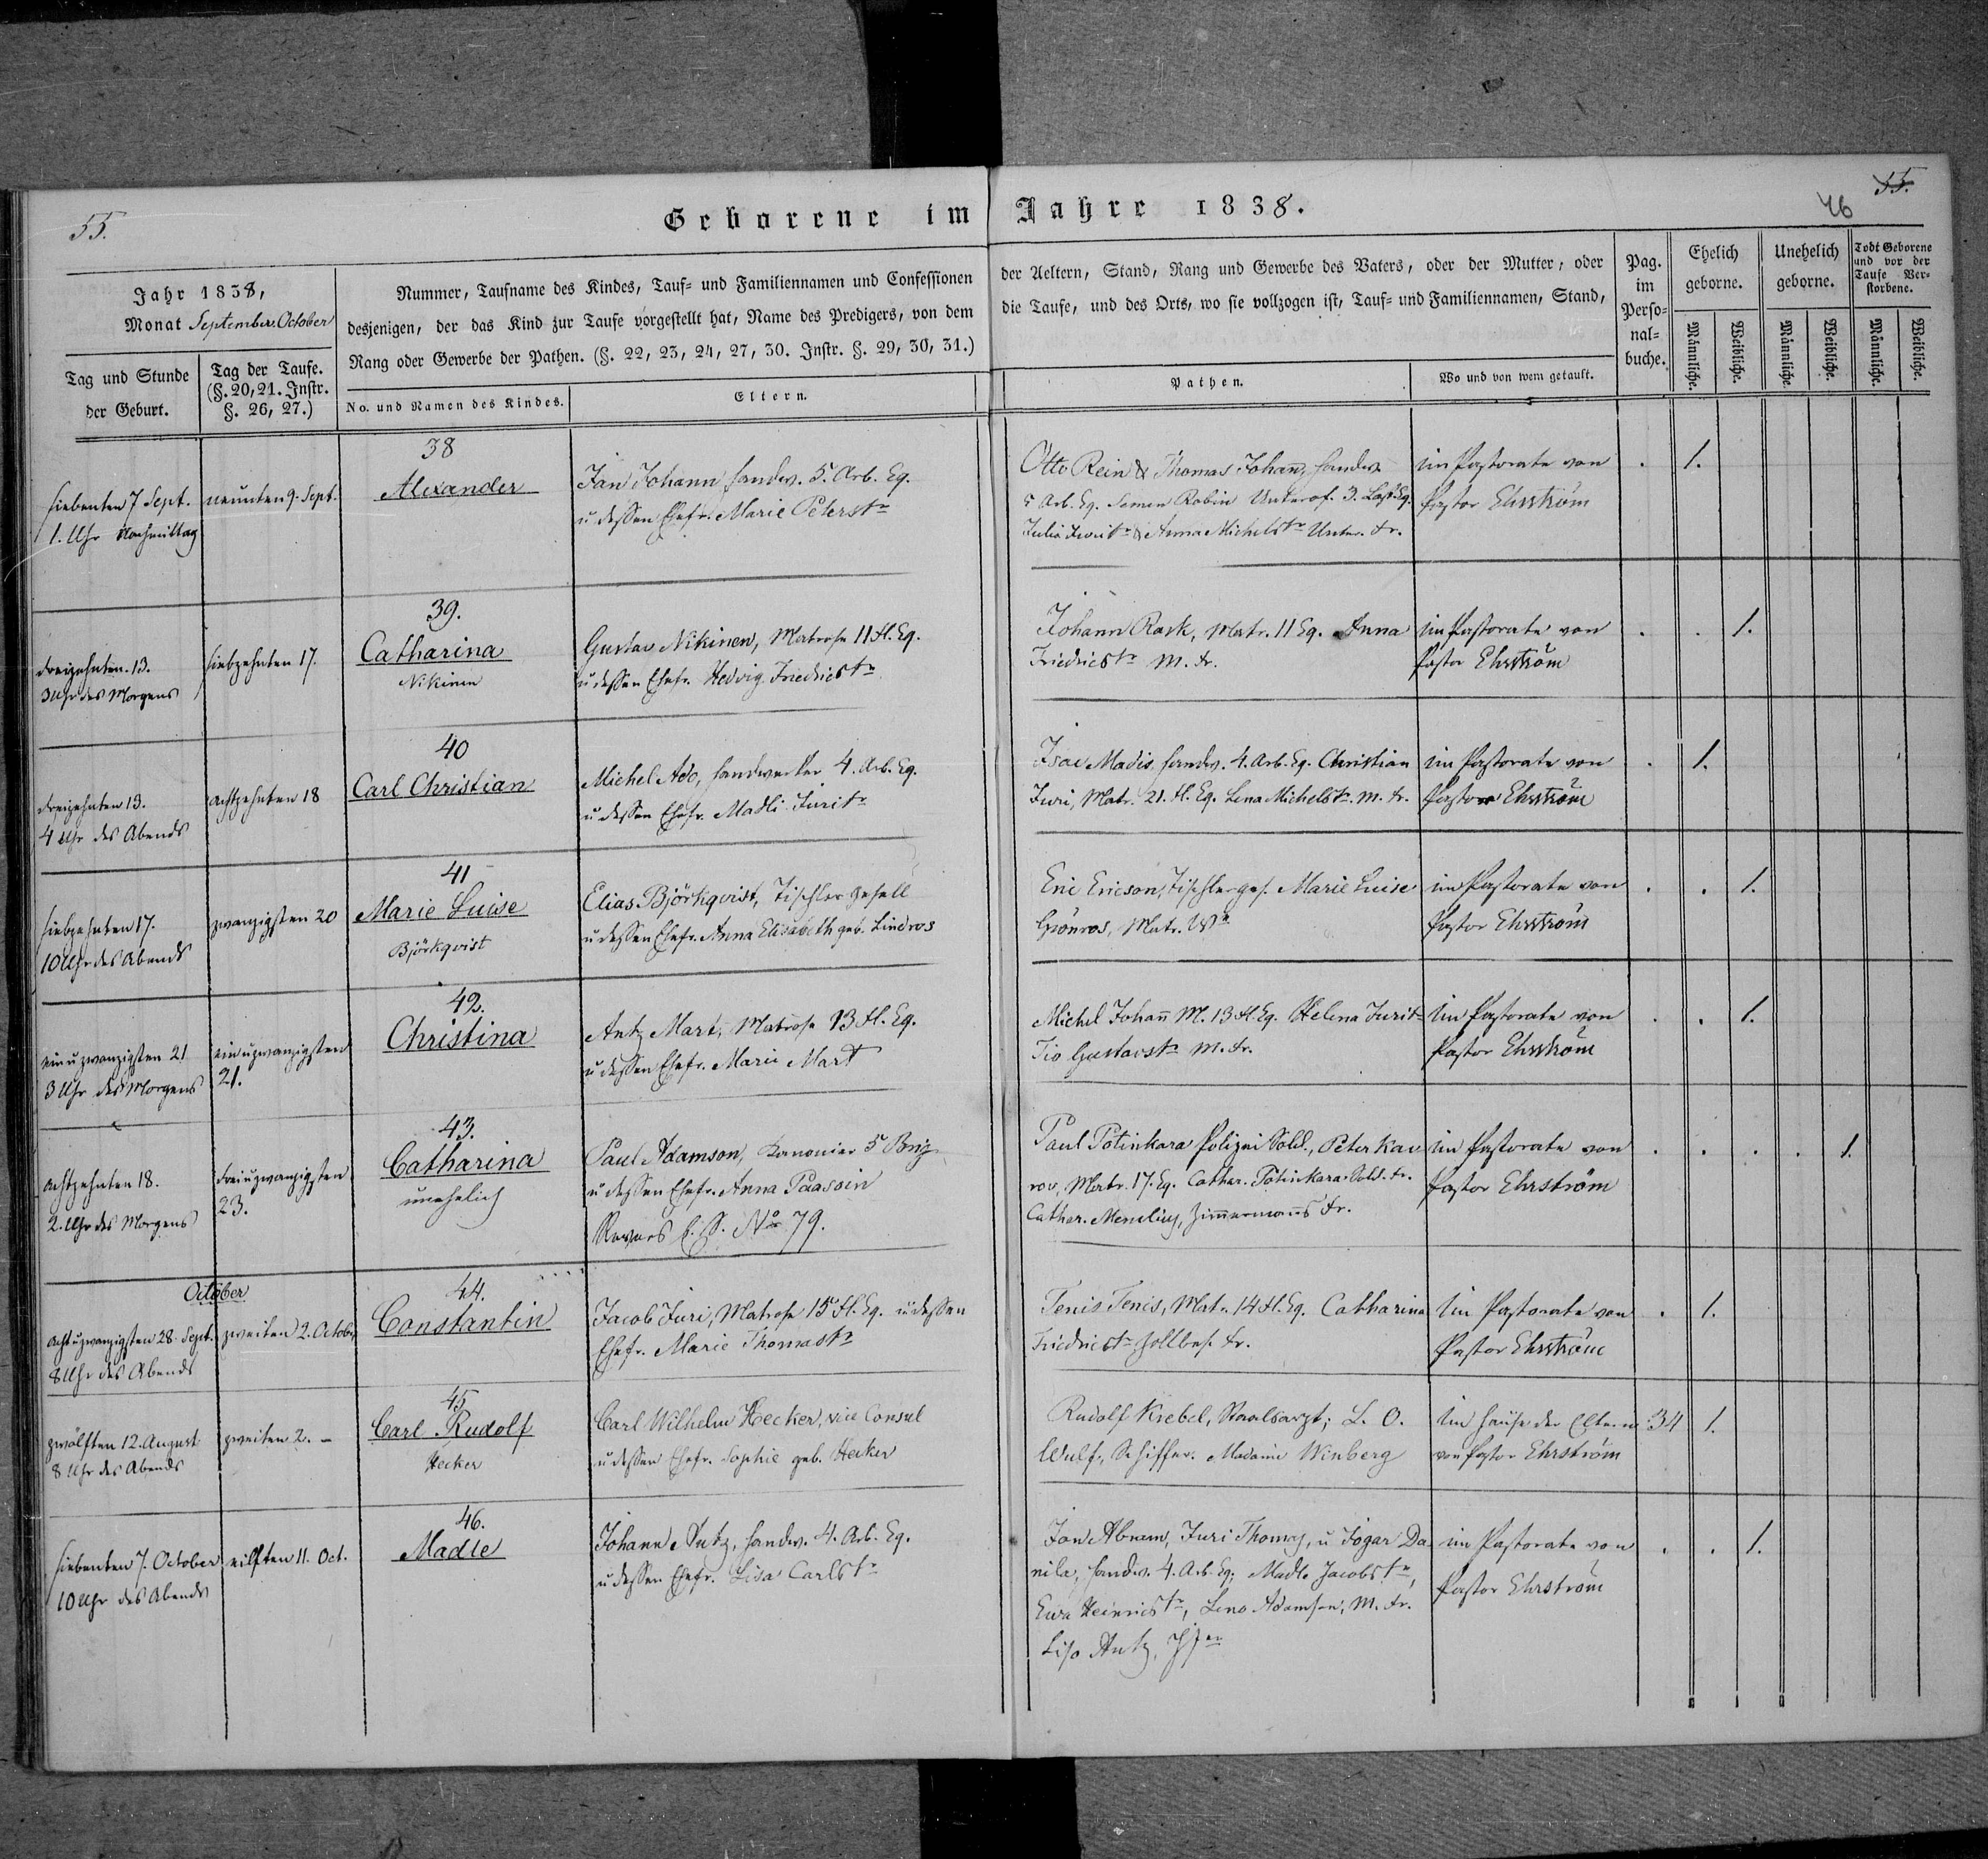 55.
Geborene im Jahre 1838.
46
55.
Jahr 1838,
Monat September. October
Tag und Stunde
der Geburt.
Tag der Taufe.
(§. 20, 21. Instr.
§. 26, 27.)
Nummer, Taufname des Kindes, Tauf- und Familiennamen und Confessionen
desjenigen, der das Kind zur Taufe vorgestellt hat, Name des Predigers, von dem
Rang oder Gewerbe der Pathen. (§. 22, 23, 24, 27, 30. Instr. §. 29, 30, 31.)
No. und Namen des Kindes.
Eltern.
der Aeltern, Stand, Rang und Gewerbe des Vaters, oder der Mutter, oder
die Taufe, und des Orts, wo sie vollzogen ist, Tauf- und Familiennamen, Stand,
Pathen.
Wo und von wem getauft.
Pag.
im
Perso-
nal-
buche.
Ehelich
geborne.
Unehelich
geborne.
Todt Geborene
und vor der
Taufe Ver-
storbene.
Männliche.
Weibliche.
Männliche.
Weibliche.
Männliche.
Weibliche.
siebenten 7 Sept.
1. Uhr Nachmittag
neunten 9. Sept.
38
Alexander
Jan Johann Handw. 5. Arb. Eq.
u dessen Ehefr. Marie Peterstr
Otto Rein & Thomas Johann, Handw.
5 Arb. Eq. Semen Robin Unterof. 3. Last. Eq.
& Anna Michelstr Unter. fr.
im Pastorate von
Pastor Ehrström
1.
dreizehnten 13.
3 Uhr des Morgens
siebzehnten 17.
39.
Catharina
Nikinen
Gustav Nikinen, Matrose 11 Fl. Eq.
u dessen Ehefr. Hedvig Friedricstr
Johann Rask, Matr. 11 Eq. Anna
Friedricstr M. fr.
im Pastorate von
Pastor Ehrström
1.
dreizehnten 13.
4 Uhr des Abends
achtzehnten 18
40
Carl Christian
Michel Ado, Handwerker 4. Arb. Eq.
u dessen Ehefr. Madli Juritr
Isac Madis, Handw. 4. Arb. Eq. Christian
Juri, Matr. 21. Fl. Eq. Lena Michelstr. M. fr.
im Pastorate von
Pastor Ehrström
1.
siebzehnten 17.
10 Uhr des Abends
zwanzigsten 20
41
Marie Luise
Björkqvist
Elias Björkqvist, Tischler Gesell
u dessen Ehefr. Anna Elisabeth geb. Lindros
Eric Ericson, Tischlerges. Marie Luise
Grönros, Matr. We
im Pastorate von
Pastor Ehrström
1.
einuzwanzigsten 21
3 Uhr des Morgens
einuzwanzigsten
21.
42.
Christina
Antz Mart, Matrose 13 Fl. Eq.
u dessen Ehefr. Marie Mart
Michel Johann M. 13 Fl. Eq. Helena Jurit-
Tio Gustavstr M. fr.
im Pastorate von
Pastor Ehrström
1.
achtzehnten 18.
2. Uhr des Morgens
dreiuzwanzigsten
23.
43.
Catharina
unehelich
Paul Adamson, Kanonier 5 Brig.
u dessen Ehefr. Anna Paasoin
Revers No 79.
Paul Potinkara Polizei Sold., Peter Kau
rov, Matr. 17. Eq. Cathar. Potinkara Sold. fr.
Cathar. Menelius, Zimmermans fr.
im Pastorate von
Pastor Ehrström
1.
October
achtuzwanzigsten 28. Sept.
8 Uhr des Abends
zweiten 2. October
44.
Constantin
Jacob Juri, Matrose 15 Fl. Eq. u dessen
Ehefr. Marie Thomastr
Tenis Tenis, Matr. 14 Fl. Eq. Catharina
Friedricstr, Zollbes. fr.
im Pastorate von
Pastor Ehrström
1.
zwölften 12. August
8 Uhr des Abends
zweiten 2. –
45
Carl Rudolf
Hecker
Carl Wilhelm Hecker, vice Consul
u dessen Ehefr. Sophie geb. Hecker
Rudolf Krebel, Staabsarzt; L. O.
Wulf, Schiffer. Madame Winberg
im Hause der Eltern
von Pastor Ehrström
34
1.
siebenten 7. October
10 Uhr des Abends
eilften 11. Oct.
46.
Madle
Johann Antz, Handw. 4. Arb. Eq.
u dessen Ehefr. Lisa Carlstr
Jan Abram, Juri Thomas, u Jogar Da
nila, Handw. 4. Arb. Eq; Madle Jacobstr,
Ewa Heinricstr, Leno Adamson, M. fr.
Lisa Antz,
im Pastorate von
Pastor Ehrström
1.